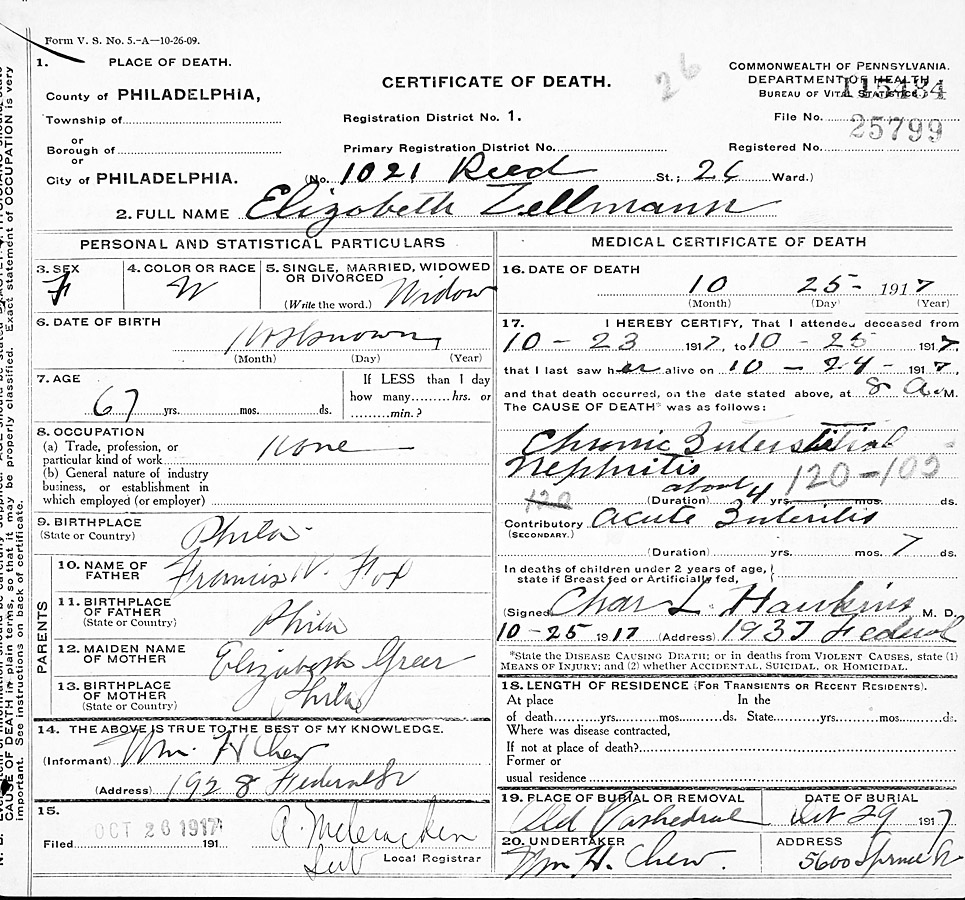 Form V. S. No. 5.-A—10-26-09.
1. PLACE OF DEATH.
County of PHILADELPHIA,
Township of
or
Borough of
or
City of PHILADELPHIA.
CERTIFICATE OF DEATH.
26
Registration District No. 1.
Primary Registration District No.
COMMONWEALTH OF PENNSYLVANIA.
DEPARTMENT OF HEALTH
BUREAU OF VITAL STATISTICS
115484
File No.
25799
Registered No.
(No. 1021 Reed St.; 26 Ward.)
2. FULL NAME Elizabeth Zellmann
PERSONAL AND STATISTICAL PARTICULARS
3. SEX
F
4. COLOR OR RACE
W
5. SINGLE, MARRIED, WIDOWED
OR DIVORCED
(Write the word.) Widow
6. DATE OF BIRTH
Unknown
(Month) (Day) (Year)
7. AGE
67 yrs. mos. ds.
If LESS than 1 day
how many hrs. or
min.?
8. OCCUPATION
(a) Trade, profession, or
particular kind of work None
(b) General nature of industry
business, or establishment in
which employed (or employer)
9. BIRTHPLACE
(State or Country) Phila
PARENTS
10. NAME OF
FATHER Francis W. Fox
11. BIRTHPLACE
OF FATHER
(State or Country) Phila
12. MAIDEN NAME
OF MOTHER Elizabeth Greer
13. BIRTHPLACE
OF MOTHER
(State or Country) Phila
14. THE ABOVE IS TRUE TO THE BEST OF MY KNOWLEDGE.
(Informant) Wm. H Chew
(Address) 1928 Federal St
15.
OCT 26 1917
Filed 191
A. McCracken
Sub Local Registrar
MEDICAL CERTIFICATE OF DEATH
16. DATE OF DEATH
10 25- 1917
(Month) (Day) (Year)
17. I HEREBY CERTIFY, That I attended deceased from
10 - 23 1917, to 10 - 25 1917,
that I last saw her alive on 10 - 24 - 1917,
and that death occurred, on the date stated above, at 8 A. M.
The CAUSE OF DEATH* was as follows:
Chronic Interstitial
Nephritis
120-102
120
about 4
(Duration) yrs. mos. ds.
Contributory Acute Enteritis
(SECONDARY.)
(Duration) yrs. mos. 7 ds.
In deaths of children under 2 years of age,
state if Breastfed or Artificially fed,
(Signed Chas L. Hawkins M. D.
10-25 1917 (Address) 1937 Federal
*State the DISEASE CAUSING DEATH; or in deaths from VIOLENT CAUSES, state (1)
MEANS OF INJURY; and (2) whether ACCIDENTAL, SUICIDAL, OR HOMICIDAL.
18. LENGTH OF RESIDENCE (FOR TRANSIENTS OR RECENT RESIDENTS).
At place In the
of death yrs. mos. ds. State yrs. mos. ds.
Where was disease contracted,
If not at place of death?
Former or
usual residence
19. PLACE OF BURIAL OR REMOVAL
Old Cathedral
DATE OF BURIAL
Oct 29 1917
20. UNDERTAKER
Wm H. Chew.
ADDRESS
5600 Spruce St
CAUSE OF DEATH in plain terms, so that it may be properly classified. Exact statement of OCCUPATION is very
important. See instructions on back of certificate.